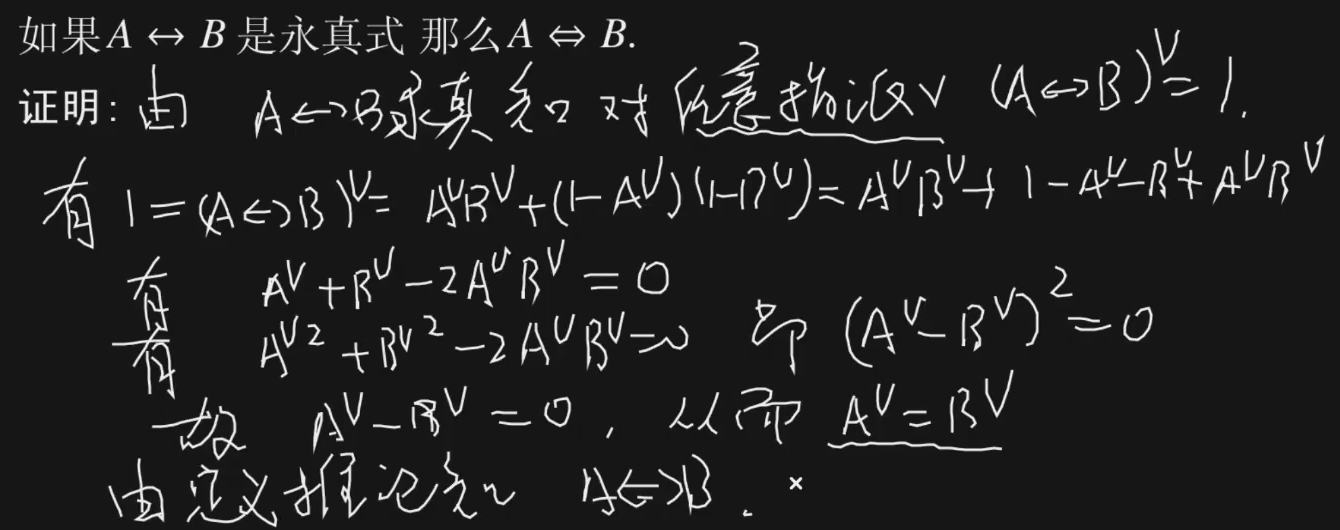 如果A ↔ B 是永真式 那么A ⇔ B.
证明: 由 A↔B永真知 对任意指派V (A↔B)^V=1.
有 1=(A↔B)^V= A^VB^V+(1-A^V)(1-B^V)= A^VB^V+1-A^V-B^V+A^VB^V
有 A^V+B^V-2A^VB^V=0
有 A^V2+B^V2-2A^VB^V=0 即 (A^V-B^V)^2=0
故 A^V-B^V=0, 从而 A^V=B^V
由定义推论知 A⇔B.